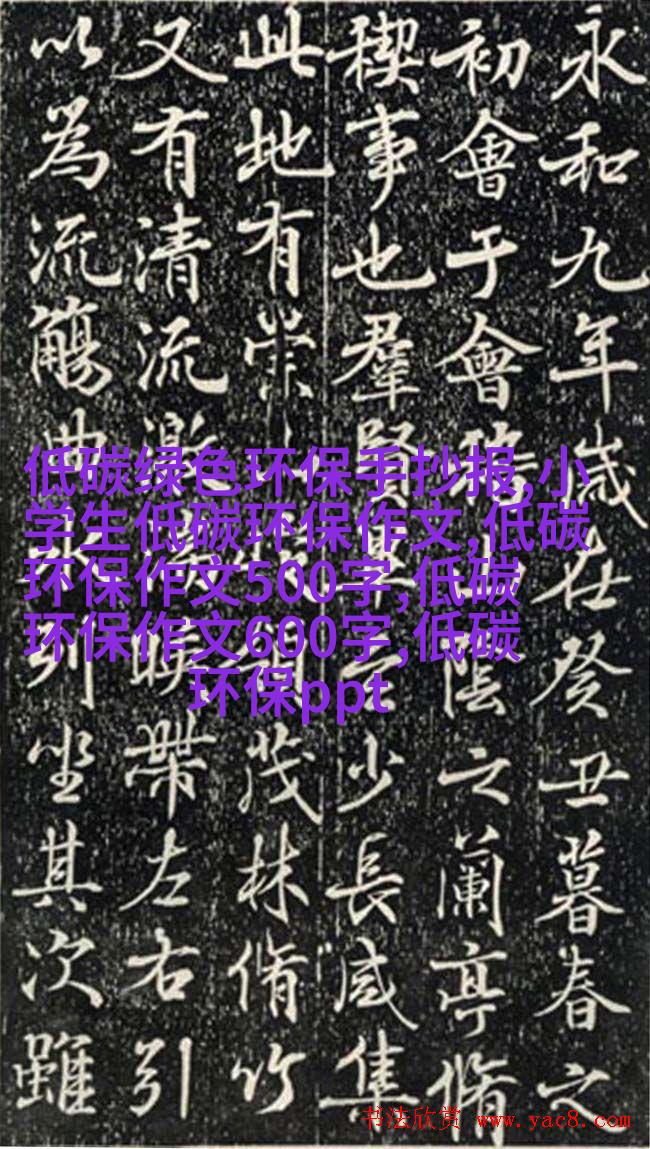 永和九年歲在癸丑暮春之
初會于會陰之蘭亭脩
稧事也羣賢少長咸集
此地有崇茂林脩竹
又有清流激暎帶左右引
以為流觴曲列坐其次雖
低碳绿色环保手抄报,小
学生低碳环保作文,低碳
环保作文500字,低碳
环保作文600字,低碳
环保ppt
书法欣赏 www.yac8.com